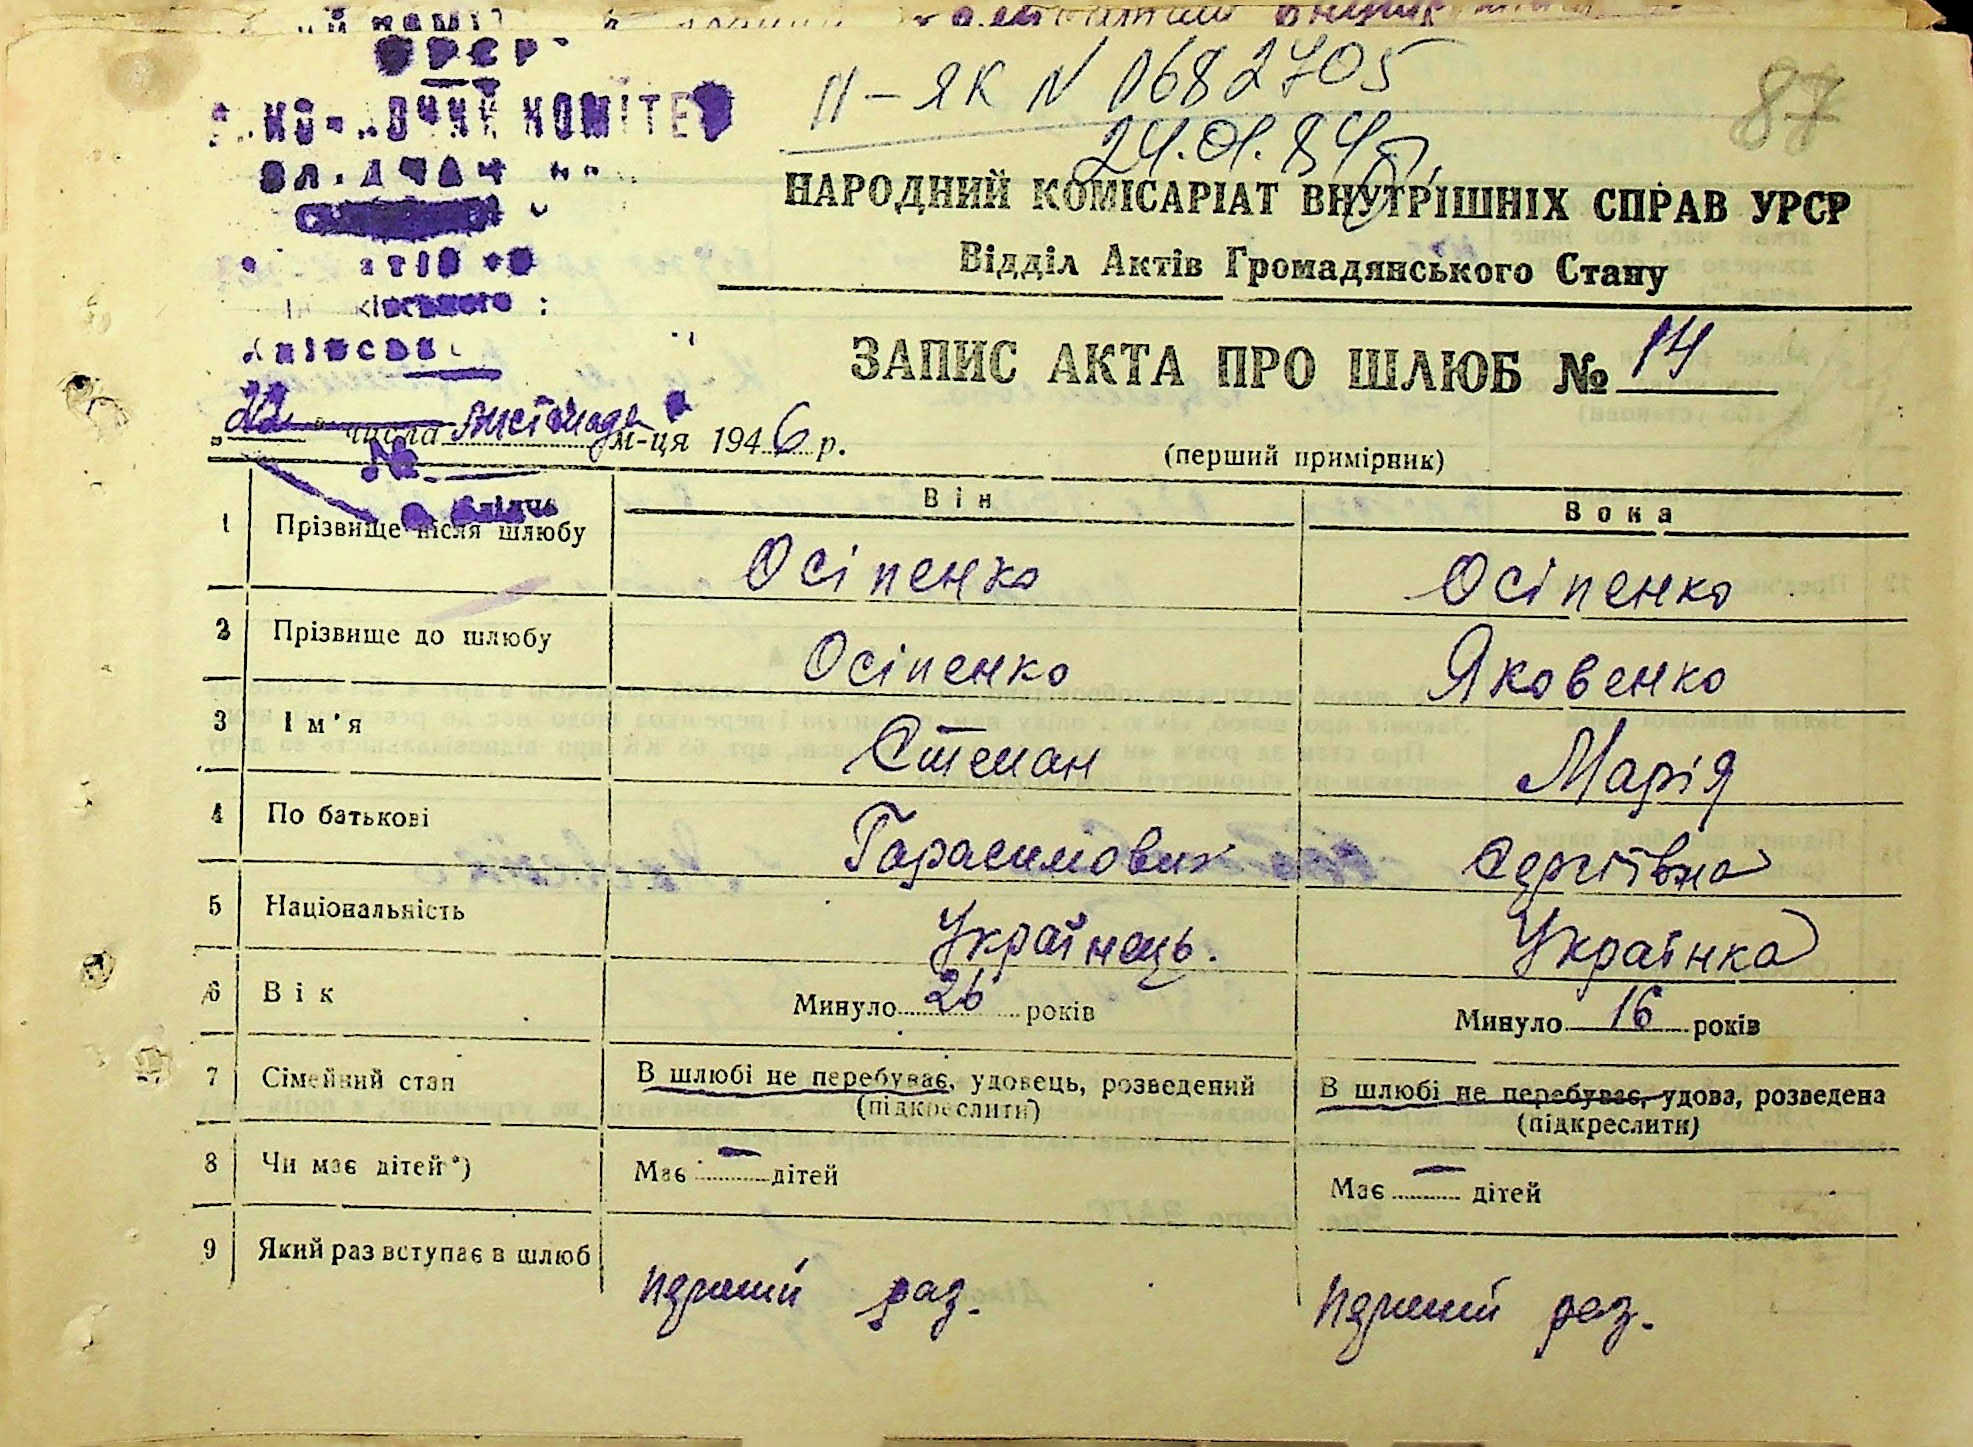 УРСР
КОМІТЕТ
ІІ – ЯК N 0682705
24.01.84р.
87
НАРОДНИЙ КОМІСАРІАТ ВНУТРІШНІХ СПРАВ УРСР
Відділ Актів Громадянського Стану
ЗАПИС АКТА ПРО ШЛЮБ № 14
„22" числа листопада м-ця 1946 р.
(перший примірник)
№
Він
Вона
1 Прізвище після шлюбу Осіпенко Осіпенко
2 Прізвище до шлюбу Осіпенко Яковенко
3 Ім'я Степан Марія
4 По батькові Гарасимович Сергіївна
5 Національність Українець. Українка
6 Вік Минуло 26 років Минуло 16 років
7 Сімейний стан В шлюбі не перебуває, удовець, розведений В шлюбі не перебуває, удова, розведена
(підкреслити) (підкреслити)
8 Чи має дітей*) Має — дітей Має — дітей
9 Який раз вступає в шлюб перший раз. перший раз.